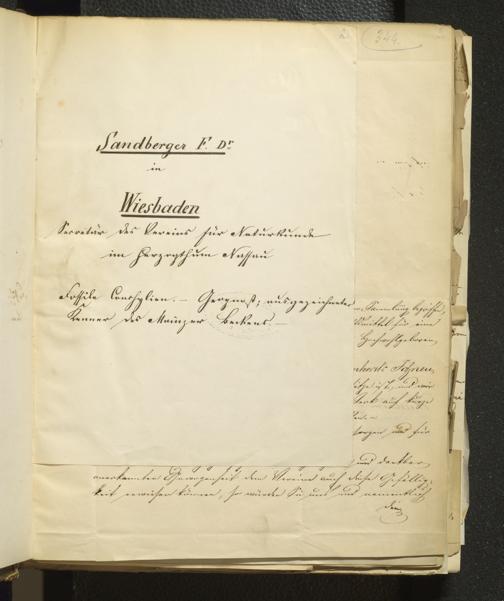 344.
Sandberger F. Dr
in
Wiesbaden
Secretär des Vereins für Naturkunde
im Herzogthum Nassau
Fossile Conchylien. — Geognost; ausgezeichneter
Kenner des Mainzer Beckens. —
Sammlung
für eine
Hochwohlgeboren
Ihnen,
auch
und für
und dankbar
anerkannten Gewogenheit dem Vereine auch diese Gefällig-
keit erweisen können, so würden Sie uns und namentlich
den